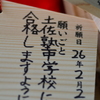 祈願日
26年2月2
願いごと
土佐塾中学校に
合格しますように